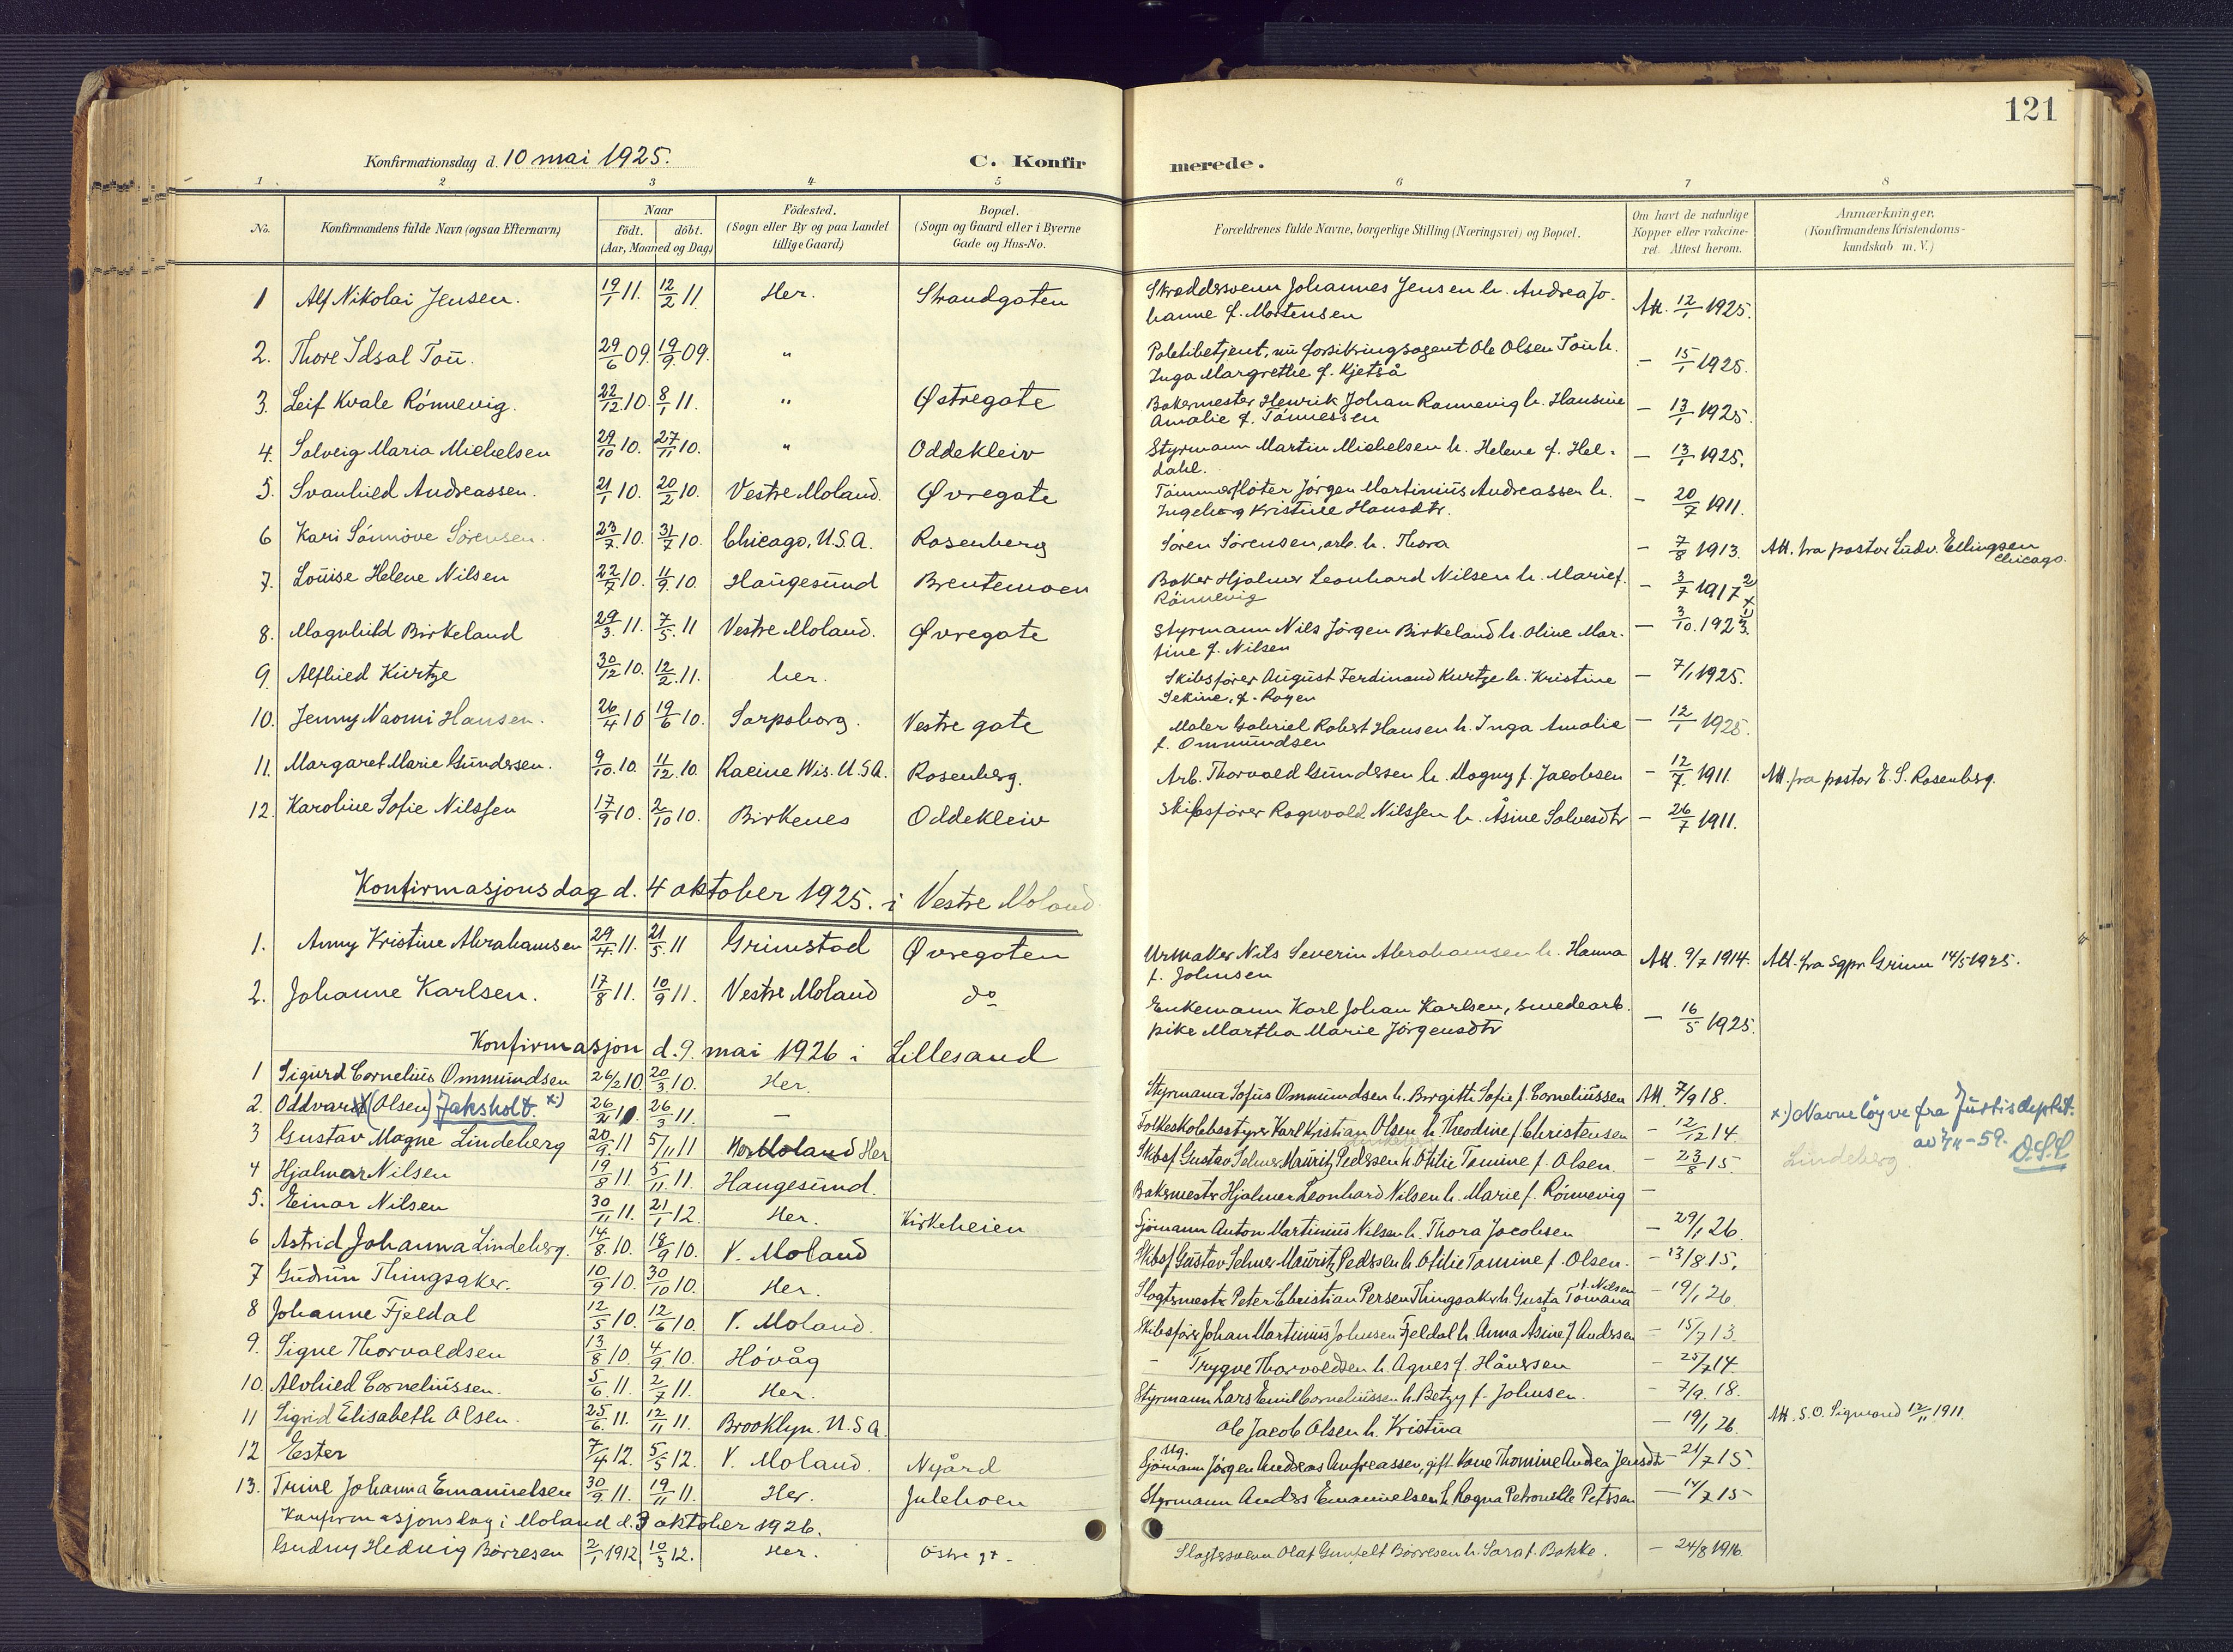 121
Konfirmationsdag d. 10 mai 1925. C. Konfirmerede.
1 2 3 4 5 6 7 8
No. Konfirmandens fulde Navn (ogsaa Efternavn) Naar födt. döbt. (Aar, Maaned og Dag) Födested. (Sogn eller By og paa Landet tillige Gaard) Bopæl. (Sogn og Gaard eller i Byerne Gade og Hus-No. Forældrenes fulde Navne, borgerlige Stilling (Næringsvei) og Bopæl. Om havt de naturlige Kopper eller vakcineret. Attest herom. Anmærkninger. (Konfirmandens Kristendomskundskab m. V.)
1 Alf Nikolai Jensen. 19/1 11. 12/2 11. Her. Strandgaten Skreddersvenn Johannes Jensen h. Andrea Johanne f. Mortensen Att. 12/1 1925.
2. Thore Idsal Tou. 29/6 09. 19/9 09. " Politibetjent, nu forsikringsagent Ole Olsen Tou h. Inga Margrethe f. Kjetså - 15/1 1925.
3. Leif Kvale Rönnevig. 22/12 10. 8/1 11. " Østregate Bakermester Henrik Johan Rønnevig h. Hansine Amalie f. Tönnessen - 13/1 1925.
4. Solveig Maria Michelsen 29/10 10. 27/11 10. " Oddekleiv Styrmann Martin Michelsen h. Helene f. Heldahl. - 13/1 1925.
5. Svanhild Andreassen. 21/1 10. 20/2 10. Vestre Moland. Øvregate Tömmerflöter Jörgen Martinius Andreassen h. Ingeborg Kristine Hansdtr. - 20/7 1911.
6 Kari Sönnöve Sörensen. 23/7 10. 31/7 10. Chicago, U.S.A. Rosenberg Sören Sörensen, arb. h. Thora - 7/8 1913. Att. fra pastor Ludv. Ellingsen Chicago.
7. Louise Helene Nilsen 22/7 10. 11/9 10. Haugesund Brentemoen Baker Hjalmar Leonhard Nilsen h. Marie f. Rönnevig - 3/7 1917
8. Magnhild Birkeland 29/3 11. 7/5 11 Vestre Moland. Øvregate Styrmann Nils Jörgen Birkeland h. Oline Martine f. Nilsen - 3/10 1923.
9. Alfhild Kurtze 30/12 10. 12/2 11. her. Skibsförer August Ferdinand Kurtze h. Kristine Sekine, f. Royen - 7/1 1925.
10. Jenny Naomi Hansen. 26/4 10 19/6 10. Sarpsborg. Vestre gate Maler Gabriel Robert Hansen h. Inga Amalie f. Ommundsen - 12/1 1925.
11. Margaret Marie Gundersen. 9/10 10. 11/12 10. Racine Wis. U.S.A. Rosenberg. Arb. Thorvald Gundersen h. Dagny f. Jacobsen - 12/7 1911. Att. fra pastor E. S. Rosenberg.
12. Karoline Sofie Nilssen 17/9 10. 2/10 10. Birkenes Oddekleiv Skibsförer Ragnvald Nilssen h. Åsine Solvesdtr - 26/7 1911.
Konfirmasjonsdag d. 4 oktober 1925. i Vestre Moland
1. Anny Kristine Abrahamsen 29/4 11. 21/5 11 Grimstad Øvregaten Urmaker Nils Severin Abrahamsen h. Hanna f. Johnsen Att. 9/7 1914. Att. fra sgpr. Grimn 14/5 1925.
2. Johanne Karlsen. 17/8 11. 10/9 11. Vestre Moland do Enkemann Karl Johan Karlsen, smedearb. pike Martha Marie Jörgensdtr - 16/5 1925.
Konfirmasjon d. 9. mai 1926 i Lillesand
1 Sigurd Cornelius Ommundsen 26/2 10. 20/3 10. Her. Styrmann Sofus Ommundsen h. Birgitte Sofie f. Corneliussen Att. 7/9 18.
2. Oddvar (Olsen) Jaksholt. x) 26/2 11. 26/3 11. — Folkeskolebestyrer Karl Kristian Olsen h. Theodine f. Christensen - 12/12 14. x) Navnelöyve fra Justisdeptet. av - 59. O.S.L
3 Gustav Magne Lindeberg 20/9 11 5/11 11 Her Skibsf. Gustav Selmer Mauritz Pedersen h. Otilie Tomine f. Olsen. - 23/8 15 Lindeberg.
4 Hjalmar Nilsen 19/8 11. 5/11 11. Haugesund. Bakermester Hjalmer Leonhard Nilsen h. Marie f. Rönnevig -
5. Einar Nilsen 30/11 11. 21/1 12. Her. Kirkeheien Sjömann Anton Martinius Nilsen h. Thora Jacobsen - 29/1 26.
6 Astrid Johanna Lindeberg. 14/8 10. 18/9 10. V. Moland Skibsf. Gustav Selmer Mauritz Pedersen h. Otilie Tomine f. Olsen. - 13/8 15.
7 Gudrun Thingsaker. 10/9 10. 30/10 10. Her. Slagtermestr. Peter Christian Persen Thingsaker h. Gusta Tomana f. Nilsen - 19/1 26.
8 Johanne Fjeldal 12/5 10. 12/6 10. V. Moland. Skibsförer Johan Martinius Johnsen Fjeldal h. Anna Asine f. Andersen - 15/7 13.
9. Signe Thorvaldsen 13/8 10. 4/9 10. Hövåg - Trygve Thorvaldsen h. Agnes f. Håversen - 25/7 14.
10. Alvhild Corneliussen. 5/6 11. 2/7 11. Her. Styrmann Lars Emil Corneliussen h. Betzy f. Johnsen. - 7/9. 18.
11 Sigrid Elisabeth Olsen. 25/6 11. 12/11 11. Brooklyn. U.S.A. Ole Jacob Olsen h. Kristina - 19/1 26. Att. S. O. Sigmond 12/11 1911.
12 Ester 7/4 12. 5/5 12. V. Moland. Nygård Ug. Sjömann Jörgen Andreas Andreassen, gift. Kone Thomine Andrea Jensdtr - 21/7 15.
13. Trine Johanna Emanuelsen 30/9 11. 19/11 11. Her. Julehoen Styrmann Anders Emanuelsen h. Ragna Petronelle Petersen - 14/7 15
Konfirmasjonsdag i Moland d. 3 oktober 1926.
Gudny Hedvig Börresen 2/1 1912 10/3 12. Her. Östre gt. Slagtersvenn Olaf Gunfelt Börresen h. Sara f. Bakke. - 24/8 1916.